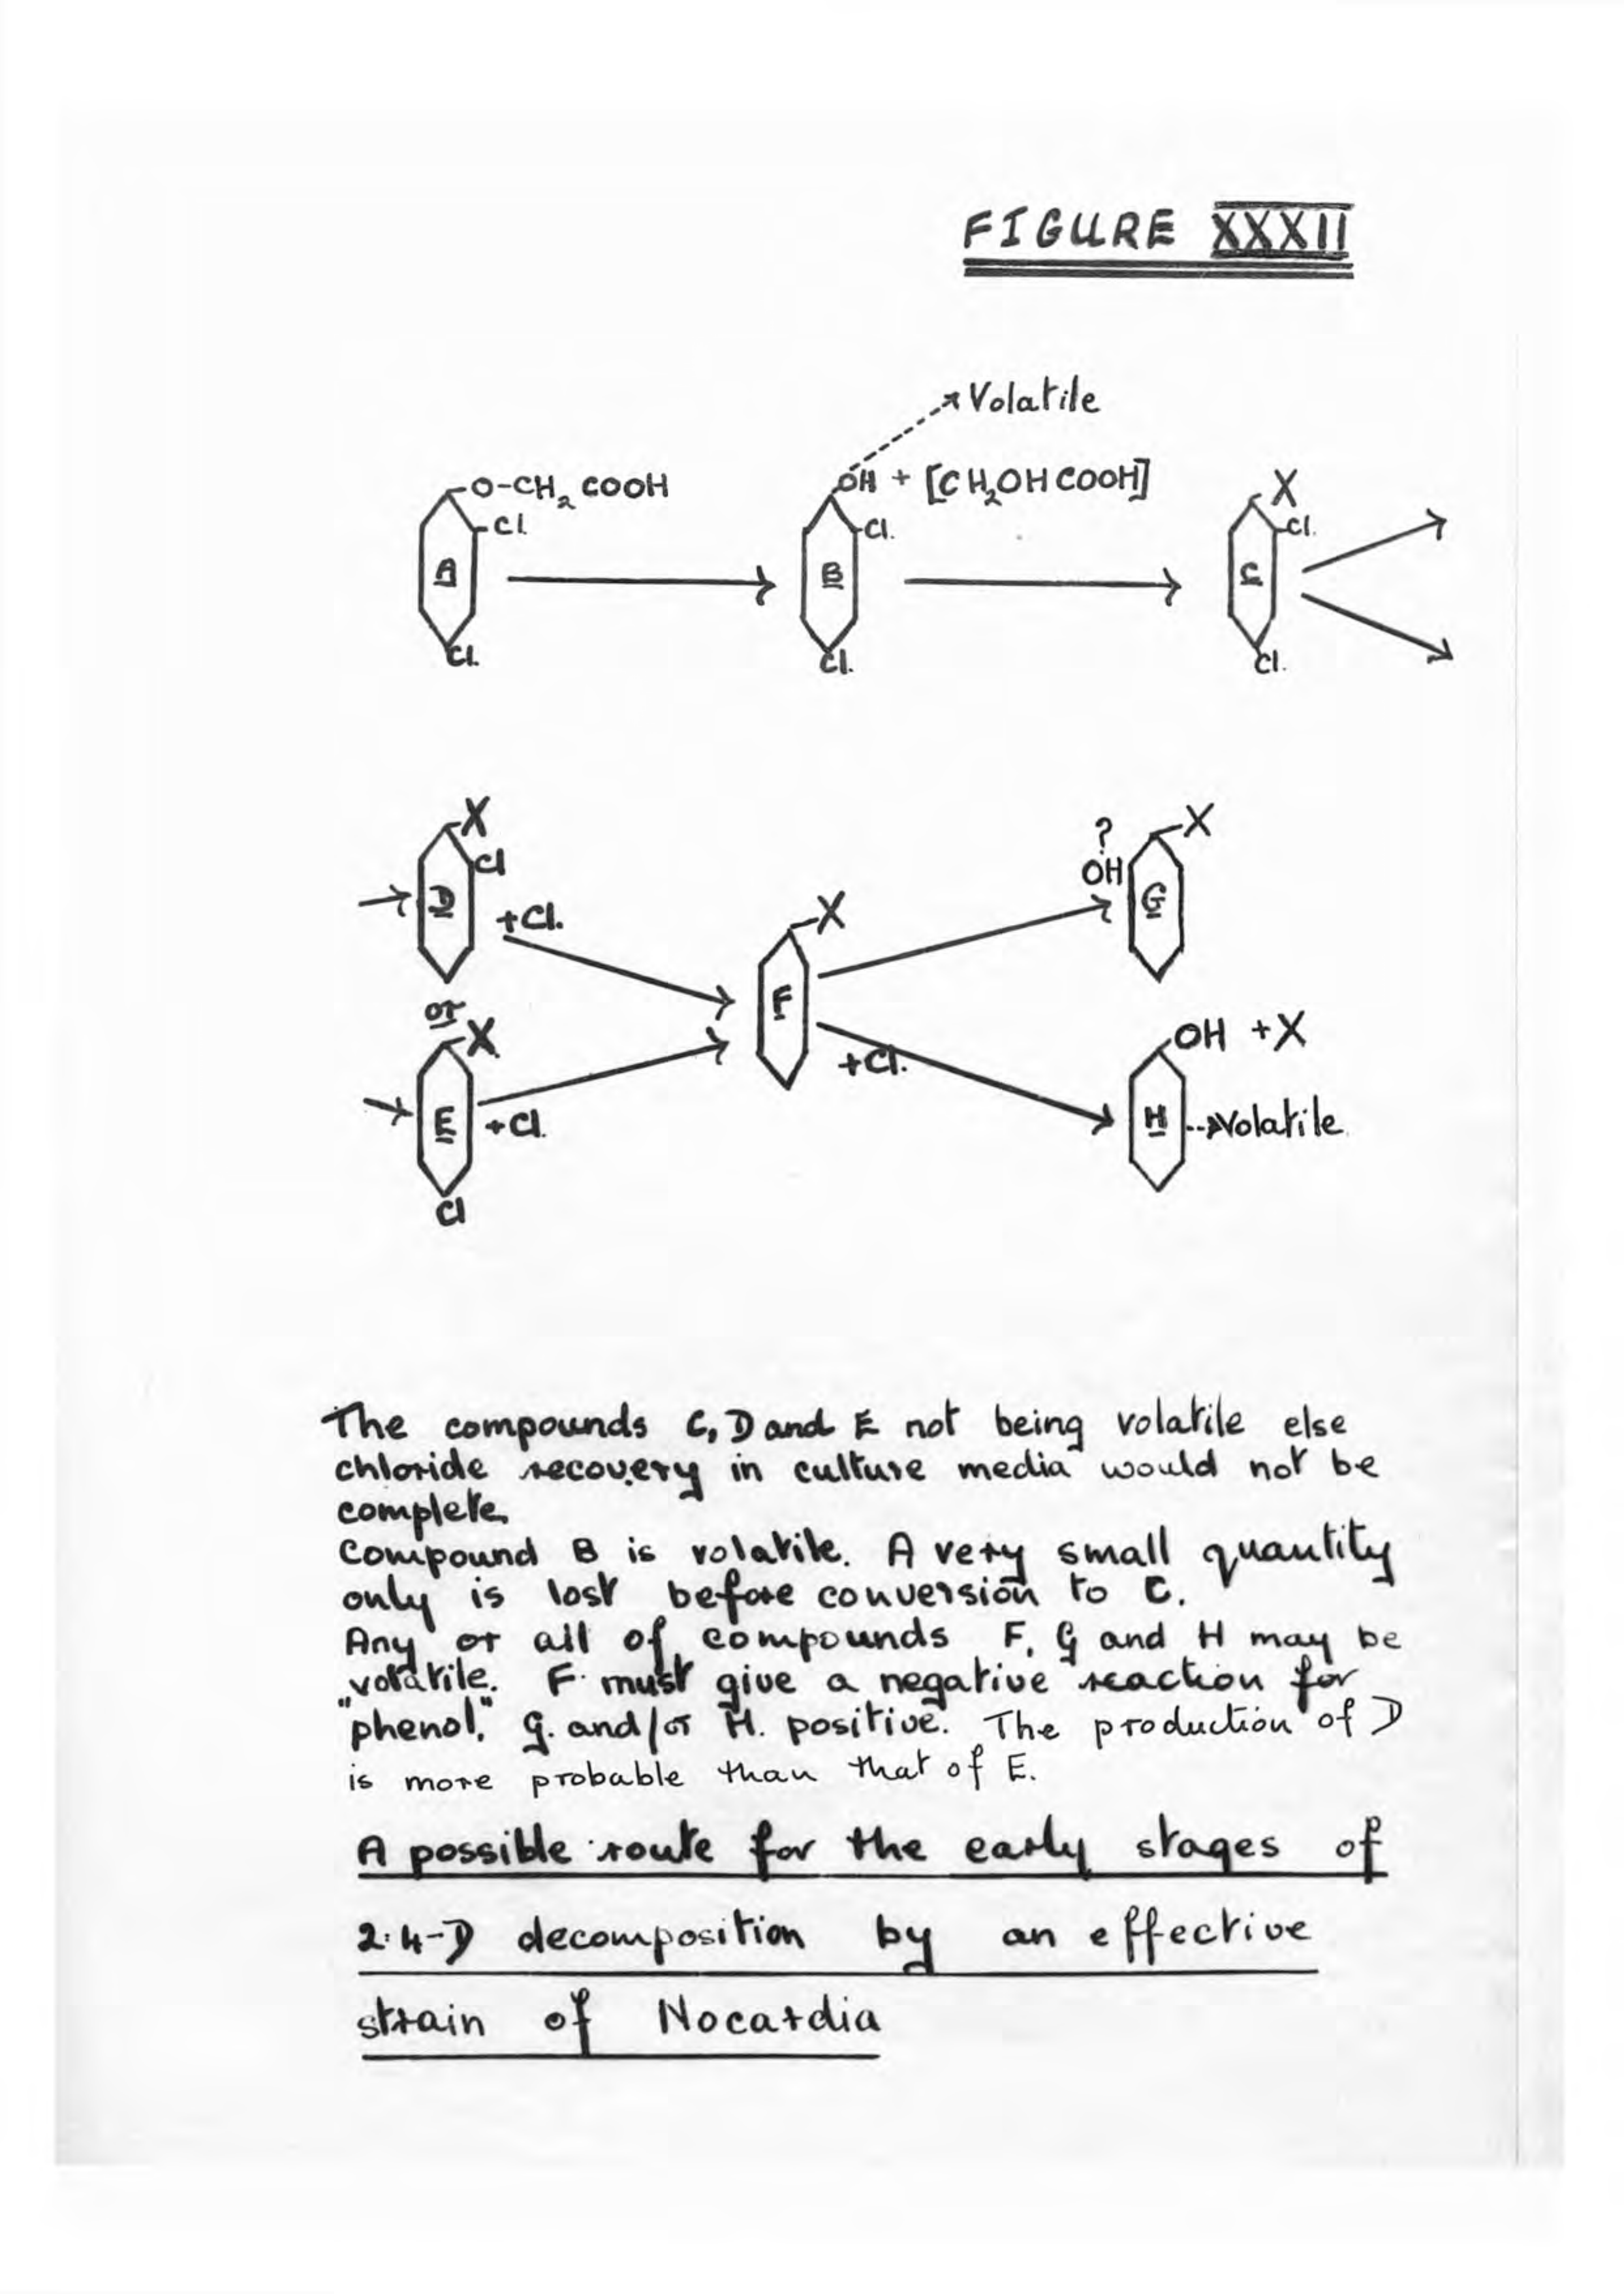 FIGURE XXXII
Volatile
O-CH2 COOH
Cl.
A
Cl.
OH + [CH2OHCOOH]
Cl.
B
Cl.
X
Cl.
C
Cl.
X
Cl
D
+Cl.
or
X
E
+Cl.
Cl
X
F
+Cl.
?
OH
X
G
OH +X
H
Volatile
The compounds C, D and E not being volatile else
chloride recovery in culture media would not be
complete.
Compound B is volatile. A very small quantity
only is lost before conversion to C.
Any or all of compounds F, G and H may be
volatile. F must give a negative reaction for
"phenol." G. and/or H. positive. The production of D
is more probable than that of E.
A possible route for the early stages of
2:4-D decomposition by an effective
strain of Nocardia